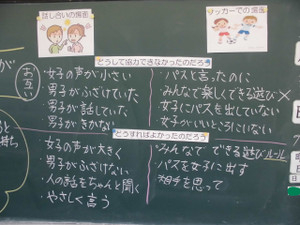 話し合いの場面
サッカーでの場面
どうして協力できなかったのだろう
お互い
・女子の声が小さい
・男子がふざけていた
・男子が話していた
・男子がきかない
・パスと言ったのに
・みんなで楽しくできる遊び×
・女子にパスを出していない
・女子がいいところにいない
どうすればよかったのだろう
・女子の声が大きく
・男子がふざけない
・人の話をちゃんと聞く
・やさしく言う
・みんなでできる遊びルール
・パスを女子に出す
・相手を思って